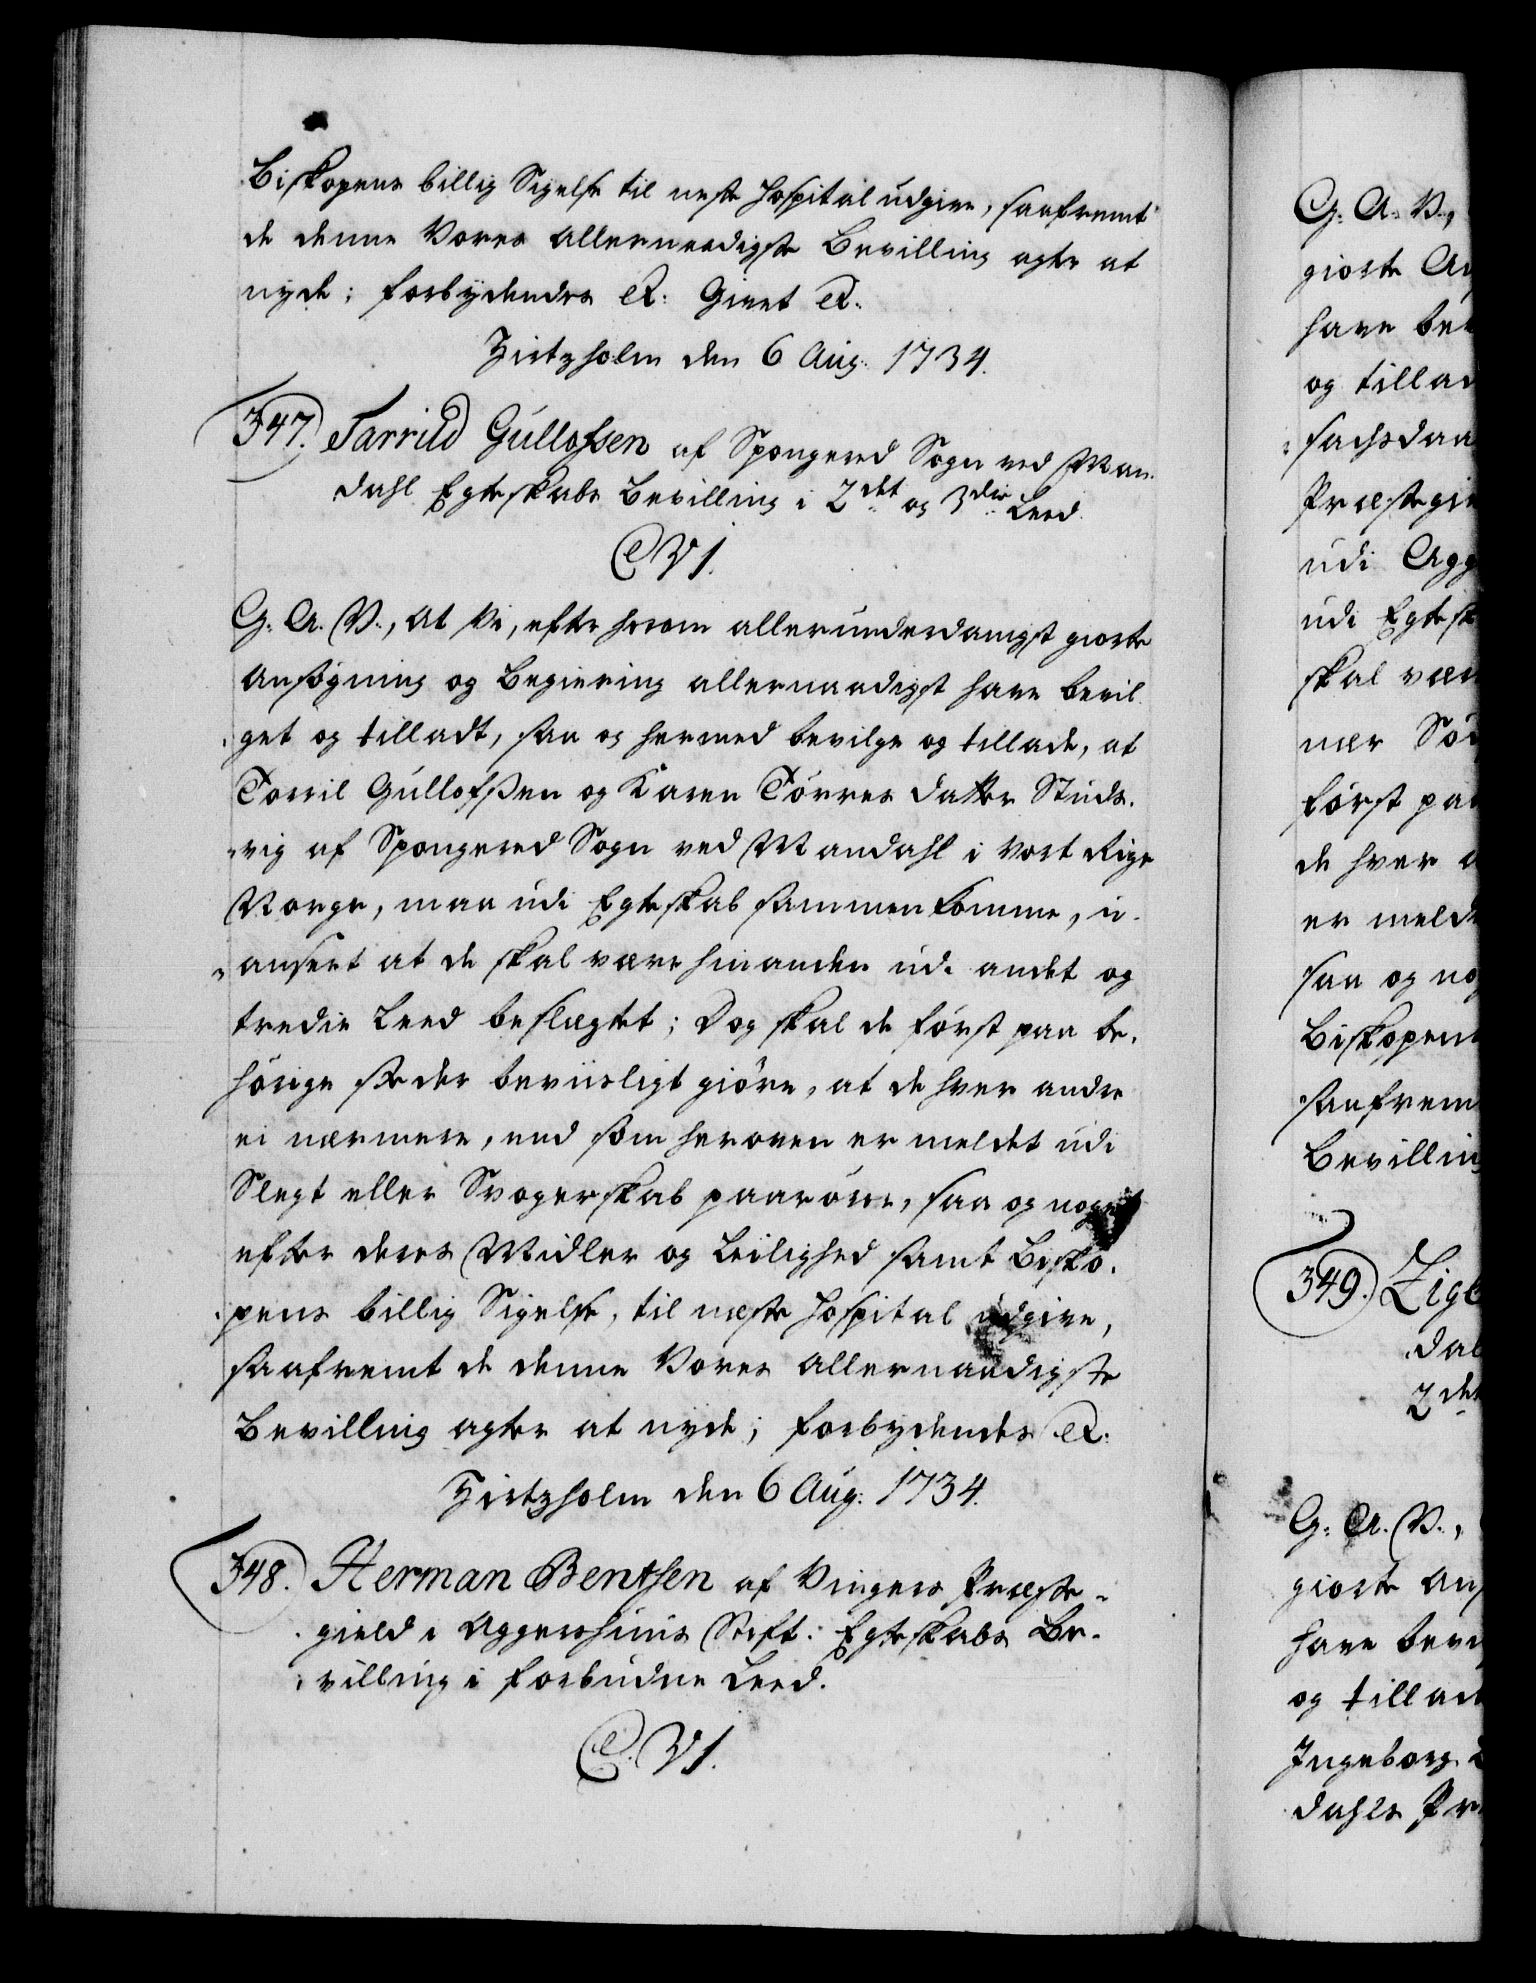 Biskopens billig Sigelse til neste Hospital udgive, saafremt
de denne Vores allernaadigste Bevilling agte at
nyde; forbydendes &c: Givet &c.
Hirtzholm den 6 Aug: 1734.
347. Tarrild Gullofsen af Spongered Sogn ved Man-
dahl Egteskabs Bevilling i 2det og 3die Leed.
C VI.
G: A. V., at Vi, efter herom allerunderdanigst giorte
Ansøgning og Begiering allernaadigst have bevil-
get og tilladt, saa og hermed bevilge og tillade, at
Torril Gullofsßen og Karen Törres Datter Studs-
vig af Spongered Sogn ved Mandahl i Vort Rige
Norge, maa udi Egteskab sammenkomme, u-
anseet at de skal være hinanden udi andet og
tredie Leed beslægtet; Dog skal de først paa be-
hörige steder beviisligt giöre, at de hver andre
ei nærmere, end som heroven er meldet udi
Slegt eller Svogerskab paaröre, saa og noget
efter deres Midler og Leilighed samt Bisko-
pens billig Sigelse, til næste Hospital udgive,
saafremt de denne Vores allernaadigste
Bevilling agter at nyde; forbydendes &c:
Hirtzholm den 6 Aug: 1734.
348. Herman Bentsen af Vingers Præste-
gield i Aggershuus Stift: Egteskabs Be-
villing i forbudne Leed.
C. VI.
G: A. V.,
giorte An
have bev
og tillad
sachsdaa
Præstegie
udi Agg
udi Egtesk
skal vær
nær Sö
först paa
de hver a
er meld
saa og no
Biskopen
saafrem
Bevilling
349. Zige
dal
2det
G: A. V.,
giorte Ans
have bevi
og tillad
Ingeborg
dahls Pr